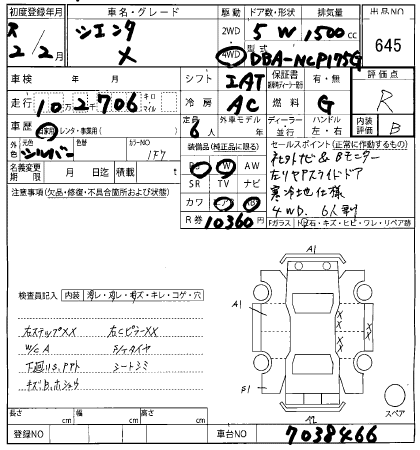 初度登録年月 車名・グレード 駆動 ドア数・形状 排気量 出品NO
R 2/2月 シエンタ X 2WD 4WD 5 W 1500cc 645
型式 DBA-NCP175G
車検 年 月 シフト IAT 保証書 有・無 評価点 R
走行 102,706 キロ マイル 冷房 AC 燃料 G
車歴 自家用 レンタ・事業用( ) 定員 6人 外車モデル 年 ディーラー 並行 ハンドル 左・右 内装評価 B
外色 元色 シルバー 色替 カラーNO 1F7
装備品(純正品に限る) セールスポイント(正常に作動するもの)
名義変更期限 月 日迄 積載 t
PS PW AW
SR TV ナビ
カワ エアB
R券 10360円
社外ナビ&Bモニター
左リヤスライドドア
寒冷地仕様
4WD. 6人乗り
注意事項(欠品・修復・不具合箇所および状態)
Fガラス 石・キズ・ヒビ・ワレ・リペア跡
検査員記入 内装 汚レ・切レ・キズ・キレ・コゲ・穴
右ステップXX 右CピラーXX
W/C A
シートシミ
A1
A1
XX
XX
スペア
長さ cm 幅 cm 高さ cm
登録NO 車台NO 7038466